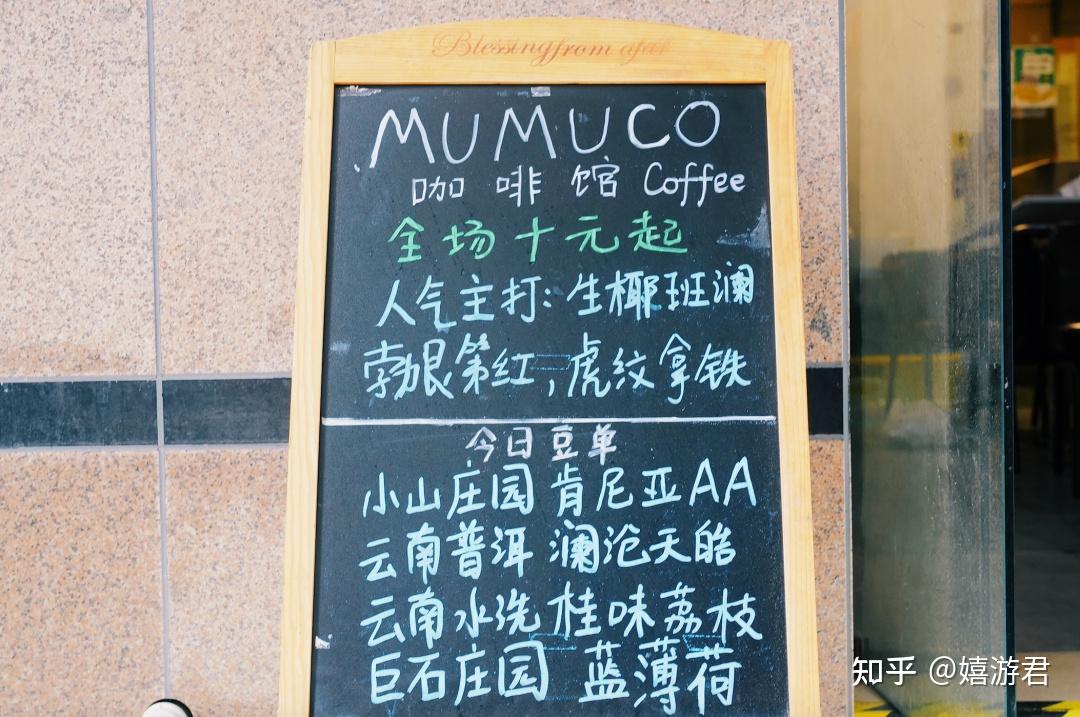 Blessing from afar
MUMUCO
咖啡馆 Coffee
全场十元起
人气主打:生椰班澜
勃艮第红,虎纹拿铁
今日豆单
小山庄园 肯尼亚AA
云南普洱 澜沧天皓
云南水洗 桂味荔枝
巨石庄园 蓝薄荷
知乎 @嬉游君